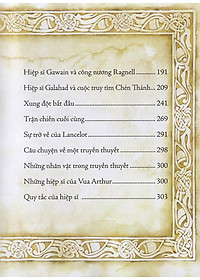 Hiệp sĩ Gawain và công nương Ragnell ............ 191
Hiệp sĩ Galahad và cuộc truy tìm Chén Thánh... 209
Xung đột bắt đầu ............ 241
Trận chiến cuối cùng ............ 269
Sự trở về của Lancelot ............ 291
Câu chuyện về một truyền thuyết ............ 298
Những nhân vật trong truyền thuyết ............ 300
Những hiệp sĩ của Vua Arthur ............ 300
Quy tắc của hiệp sĩ ............ 303